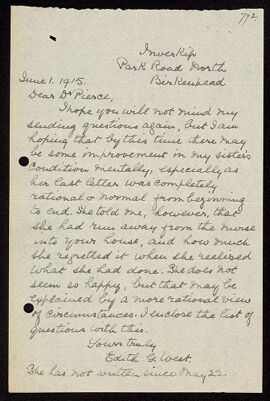 7/92
Inverkip
Park Road North
Birkenhead
June 1. 1915.
Dear Dr Pierce,
I hope you will not mind my
sending questions again, but I am
hoping that by this time there may
be some improvement in my sister's
condition mentally, especially as
her last letter was completely
rational & normal from beginning
to end. She told me, however, that
she had run away from the nurse
into your house, and how much
she regretted it when she realized
what she had done. She does not
seem so happy, but that may be
explained by a more rational view
of circumstances. I enclose the list of
questions with this.
Yours truly
Edith G. West.
She has not written since May 22.